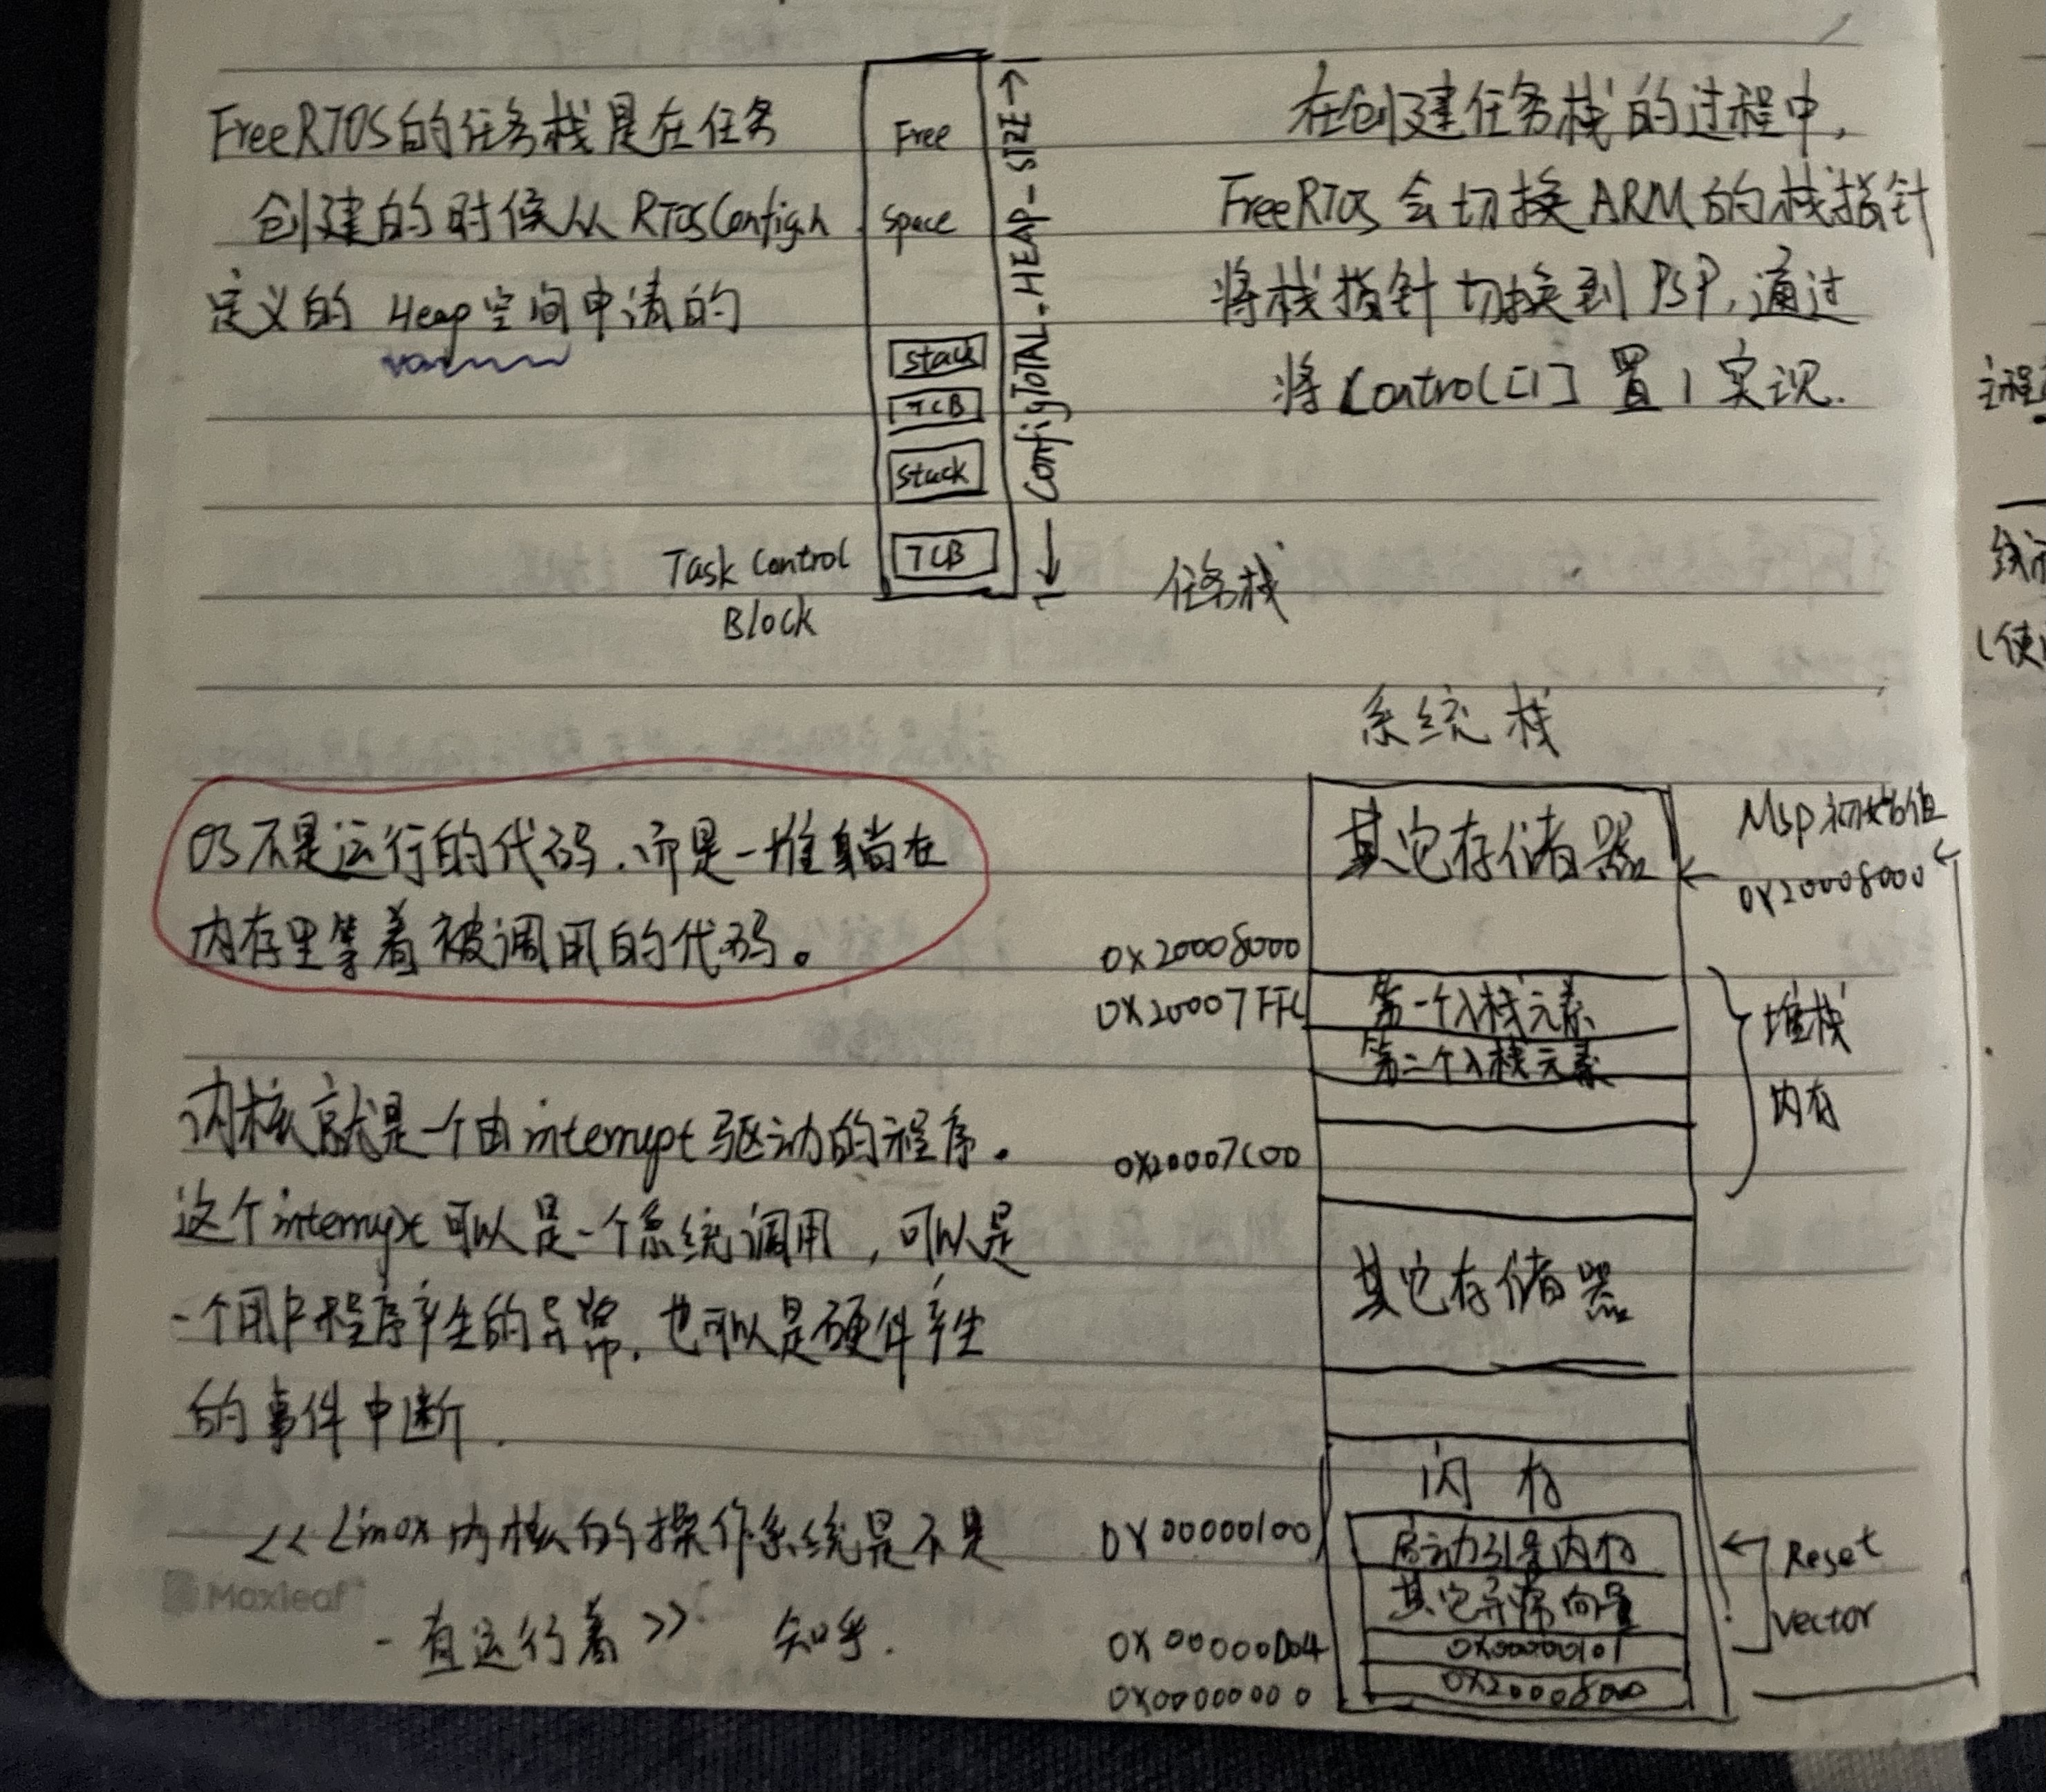 FreeRTOS的任务栈是在任务
创建的时候从RTOSConfig.h
定义的 Heap空间申请的
Free
Space
stack
TCB
stack
TCB
Task Control
Block
ConfigTOTAL-HEAP-SIZE
在创建任务栈的过程中,
FreeRTOS会切换ARM的栈指针
将栈指针切换到PSP,通过
将Control[1] 置1实现.
任务栈
OS不是运行的代码.而是一堆躺在
内存里等着被调用的代码。
内核就是一个由interrupt驱动的程序.
这个interrupt可以是一个系统调用,可以是
一个用户程序产生的异常.也可以是硬件产生
的事件中断.
<<Linux内核的操作系统是不是
一直运行着>> 知乎.
Maxleaf
系统栈
其它存储器
MSP初始值
0x20008000
0x20008000
0x20007FFC
第一个入栈元素
第二个入栈元素
堆栈
内存
0x20007C00
其它存储器
闪存
0x00000100
启动引导内存
其它异常向量
Reset
Vector
0x00000004
0x00000101
0x00000000
0x20008000
主程
(使